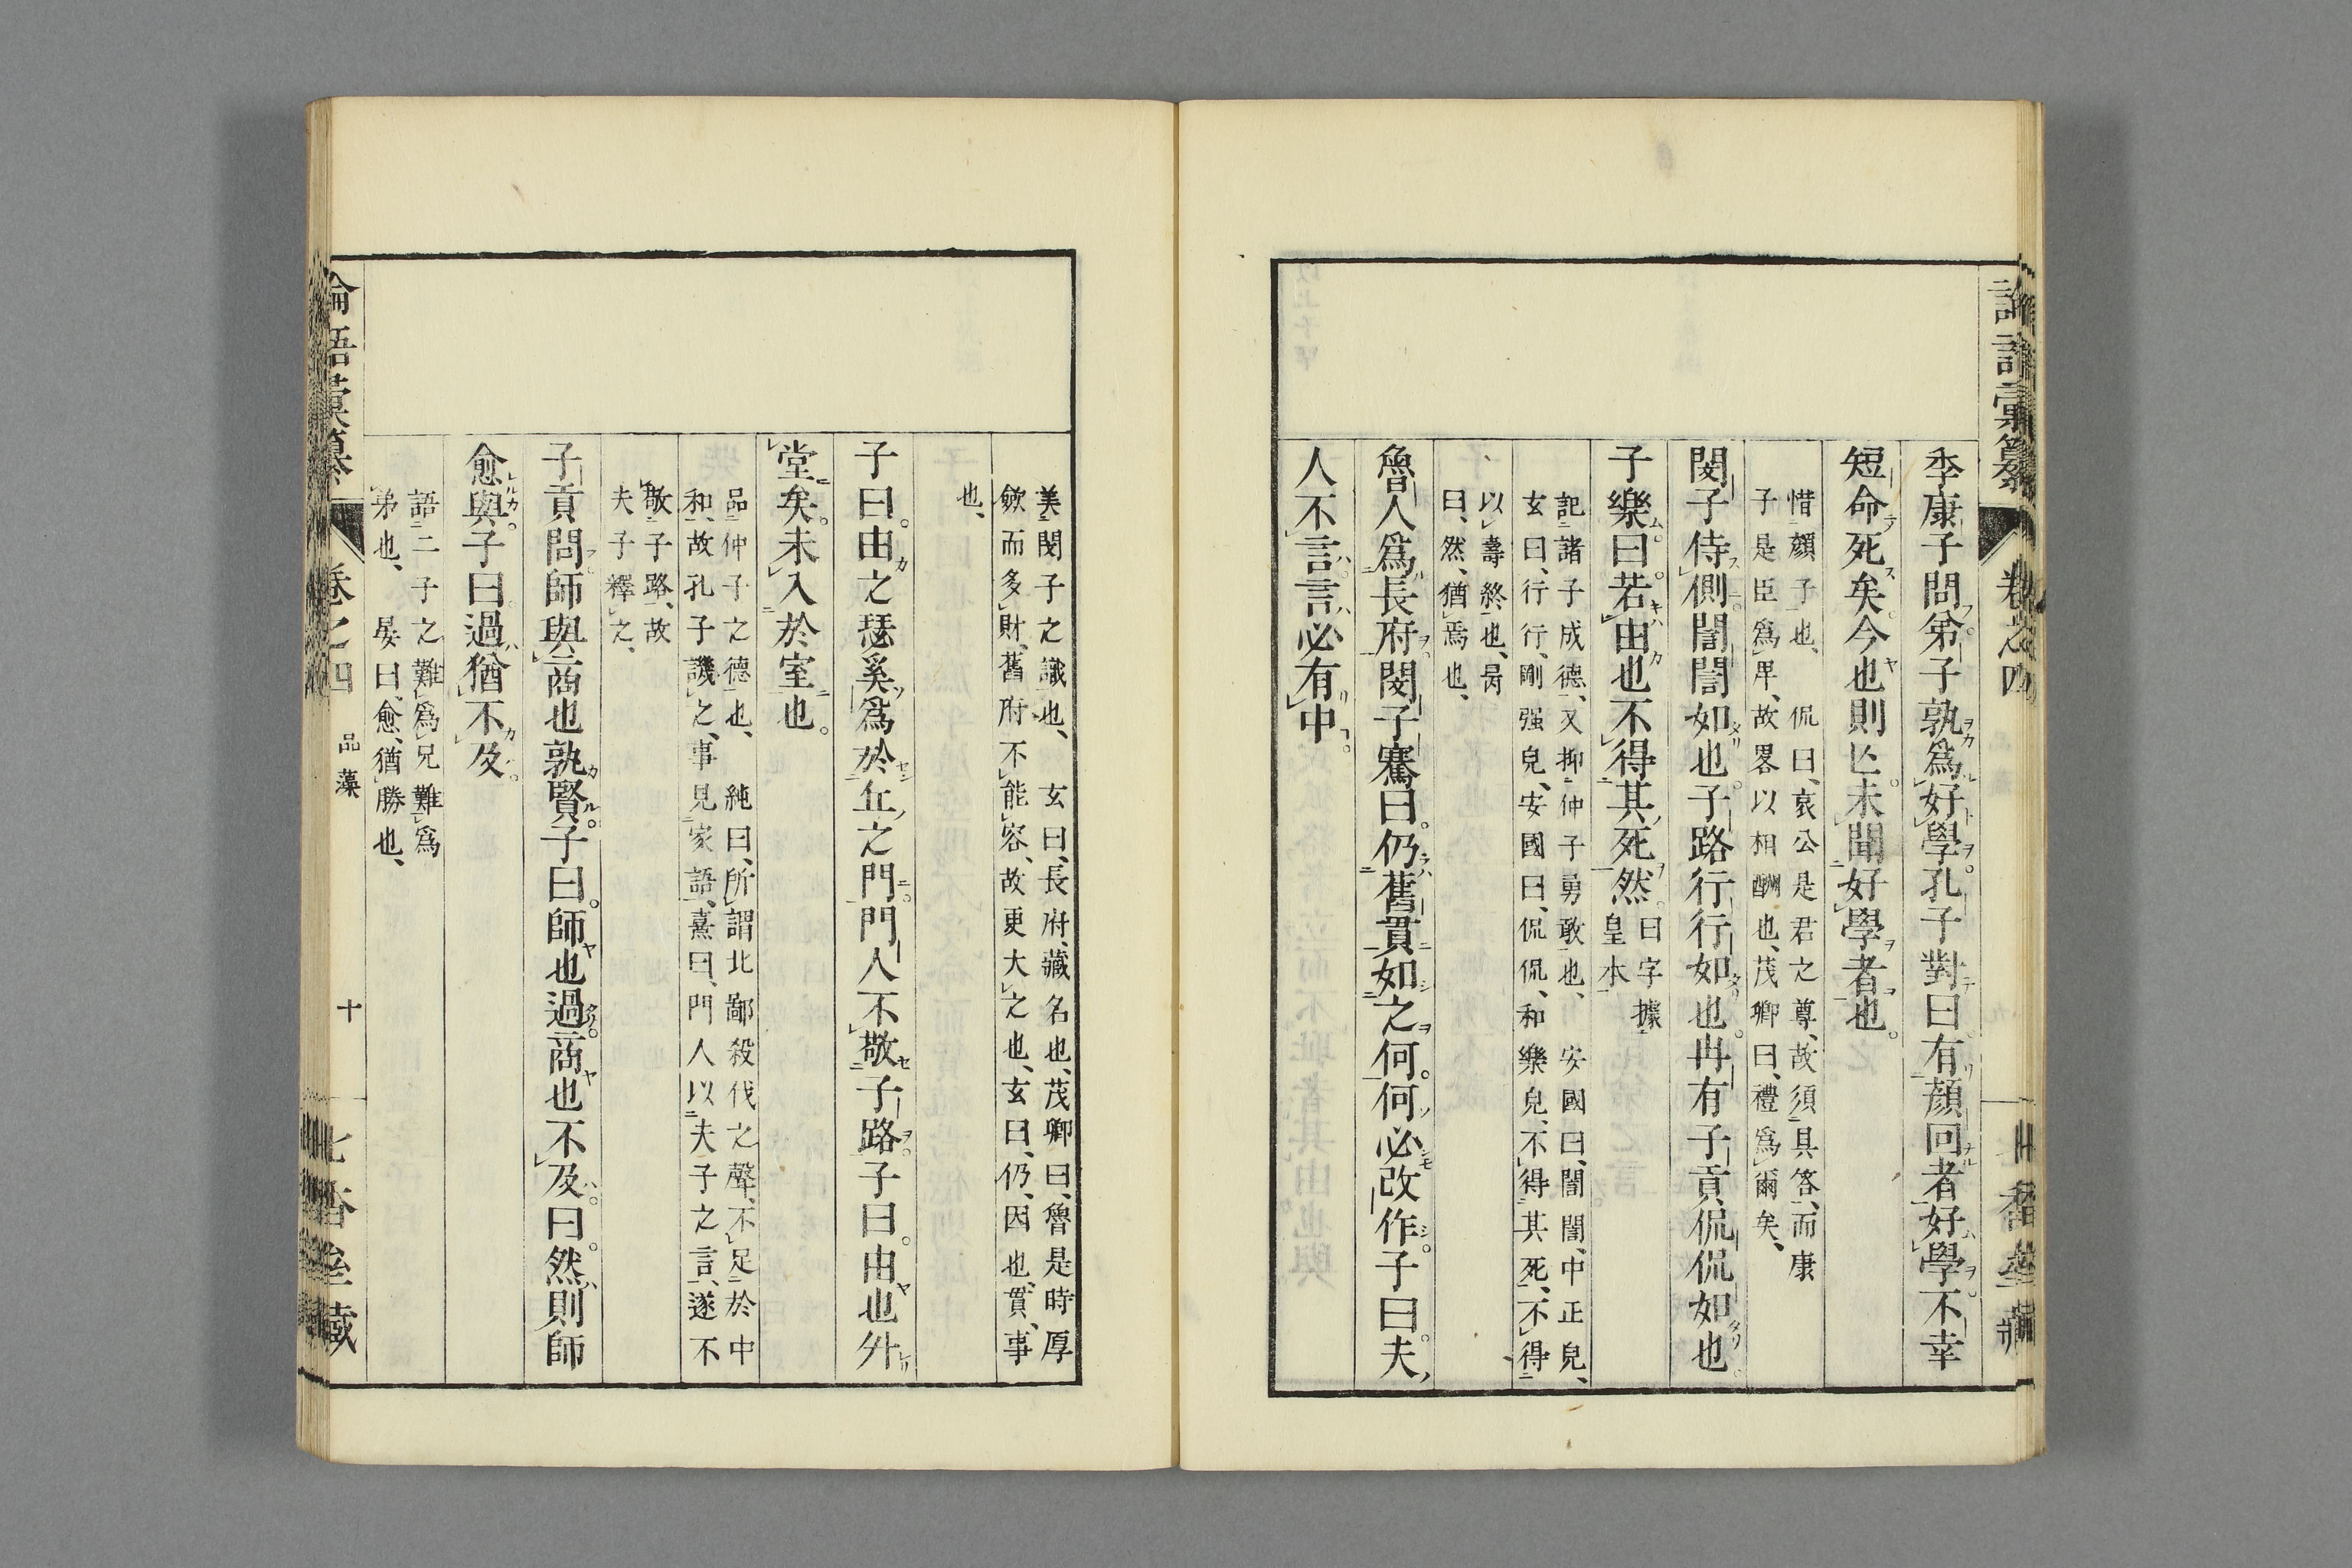 論語彙纂 卷之四
季康子問弟子孰爲好學孔子對曰有顏回者好學不幸
短命死矣今也則亡未聞好學者也
惜顏子也、 侃曰、哀公是君之尊、故須具答、而康
子是臣爲卑、故畧以相酬也、茂卿曰、禮爲爾矣、
閔子侍側誾誾如也子路行行如也冉有子貢侃侃如也
子樂曰若由也不得其死然
曰字據
皇本
記諸子成德、又抑仲子勇敢也、 安國曰、誾誾、中正皃、
玄曰、行行、剛强皃、安國曰、侃侃、和樂皃、不得其死、不得
以壽終也、昺
曰、然、猶焉也、
魯人爲長府閔子騫曰仍舊貫如之何何必改作子曰夫
人不言言必有中
美閔子之識也、 玄曰、長府、藏名也、茂卿曰、魯是時厚
斂而多財、舊府不能容、故更大之也、玄曰、仍、因也、貫、事
也、
子曰由之瑟奚爲於丘之門門人不敬子路子曰由也升
堂矣未入於室也
品仲子之德也、 純曰、所謂北鄙殺伐之聲、不足於中
和、故孔子譏之、事見家語、熹曰、門人以夫子之言、遂不
敬子路、故
夫子釋之、
子貢問師與商也孰賢子曰師也過商也不及曰然則師
愈與子曰過猶不及
語二子之難爲兄難爲
弟也、 晏曰、愈、猶勝也、
論語彙纂 卷之四 品藻 十